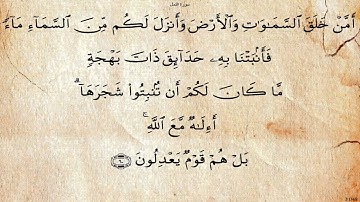 سورة النمل
أَمَّنْ خَلَقَ ٱلسَّمَـٰوَٰتِ وَٱلْأَرْضَ وَأَنزَلَ لَكُم مِّنَ ٱلسَّمَآءِ مَآءً
فَأَنۢبَتْنَا بِهِۦ حَدَآئِقَ ذَاتَ بَهْجَةٍ
مَّا كَانَ لَكُمْ أَن تُنۢبِتُوا۟ شَجَرَهَآ ۗ
أَءِلَـٰهٌ مَّعَ ٱللَّهِ ۚ
بَلْ هُمْ قَوْمٌ يَعْدِلُونَ ٦٠